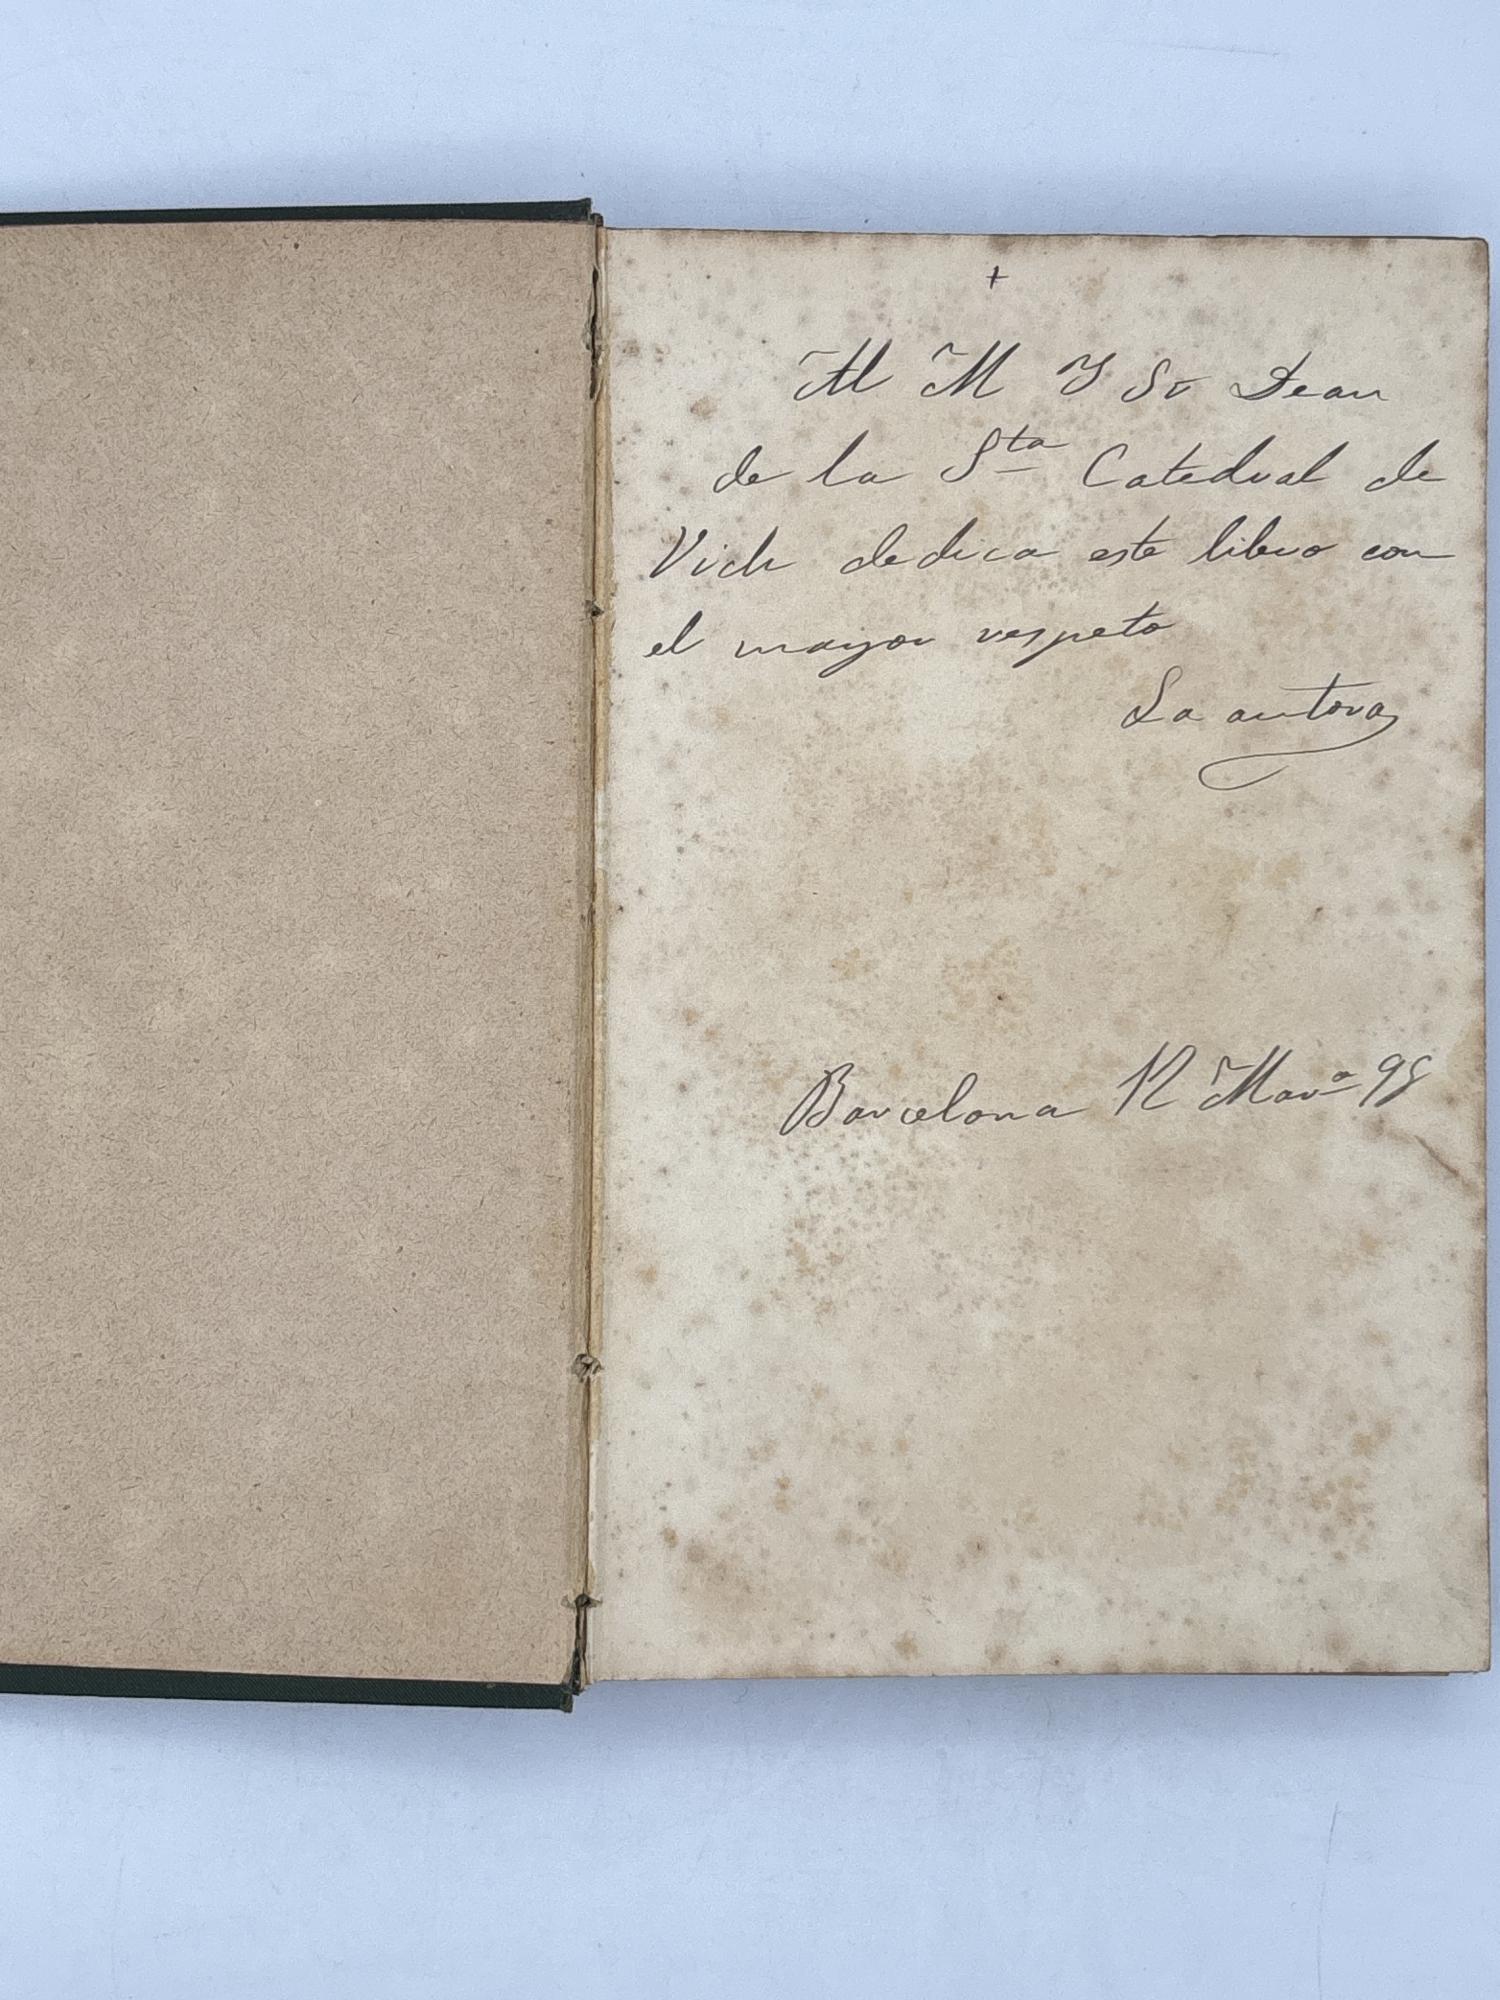 +
Al M Y Sr Dean
de la Sta Catedral de
Vich dedica este libro con
el mayor respeto
La autora
Barcelona 12 Marzo 98